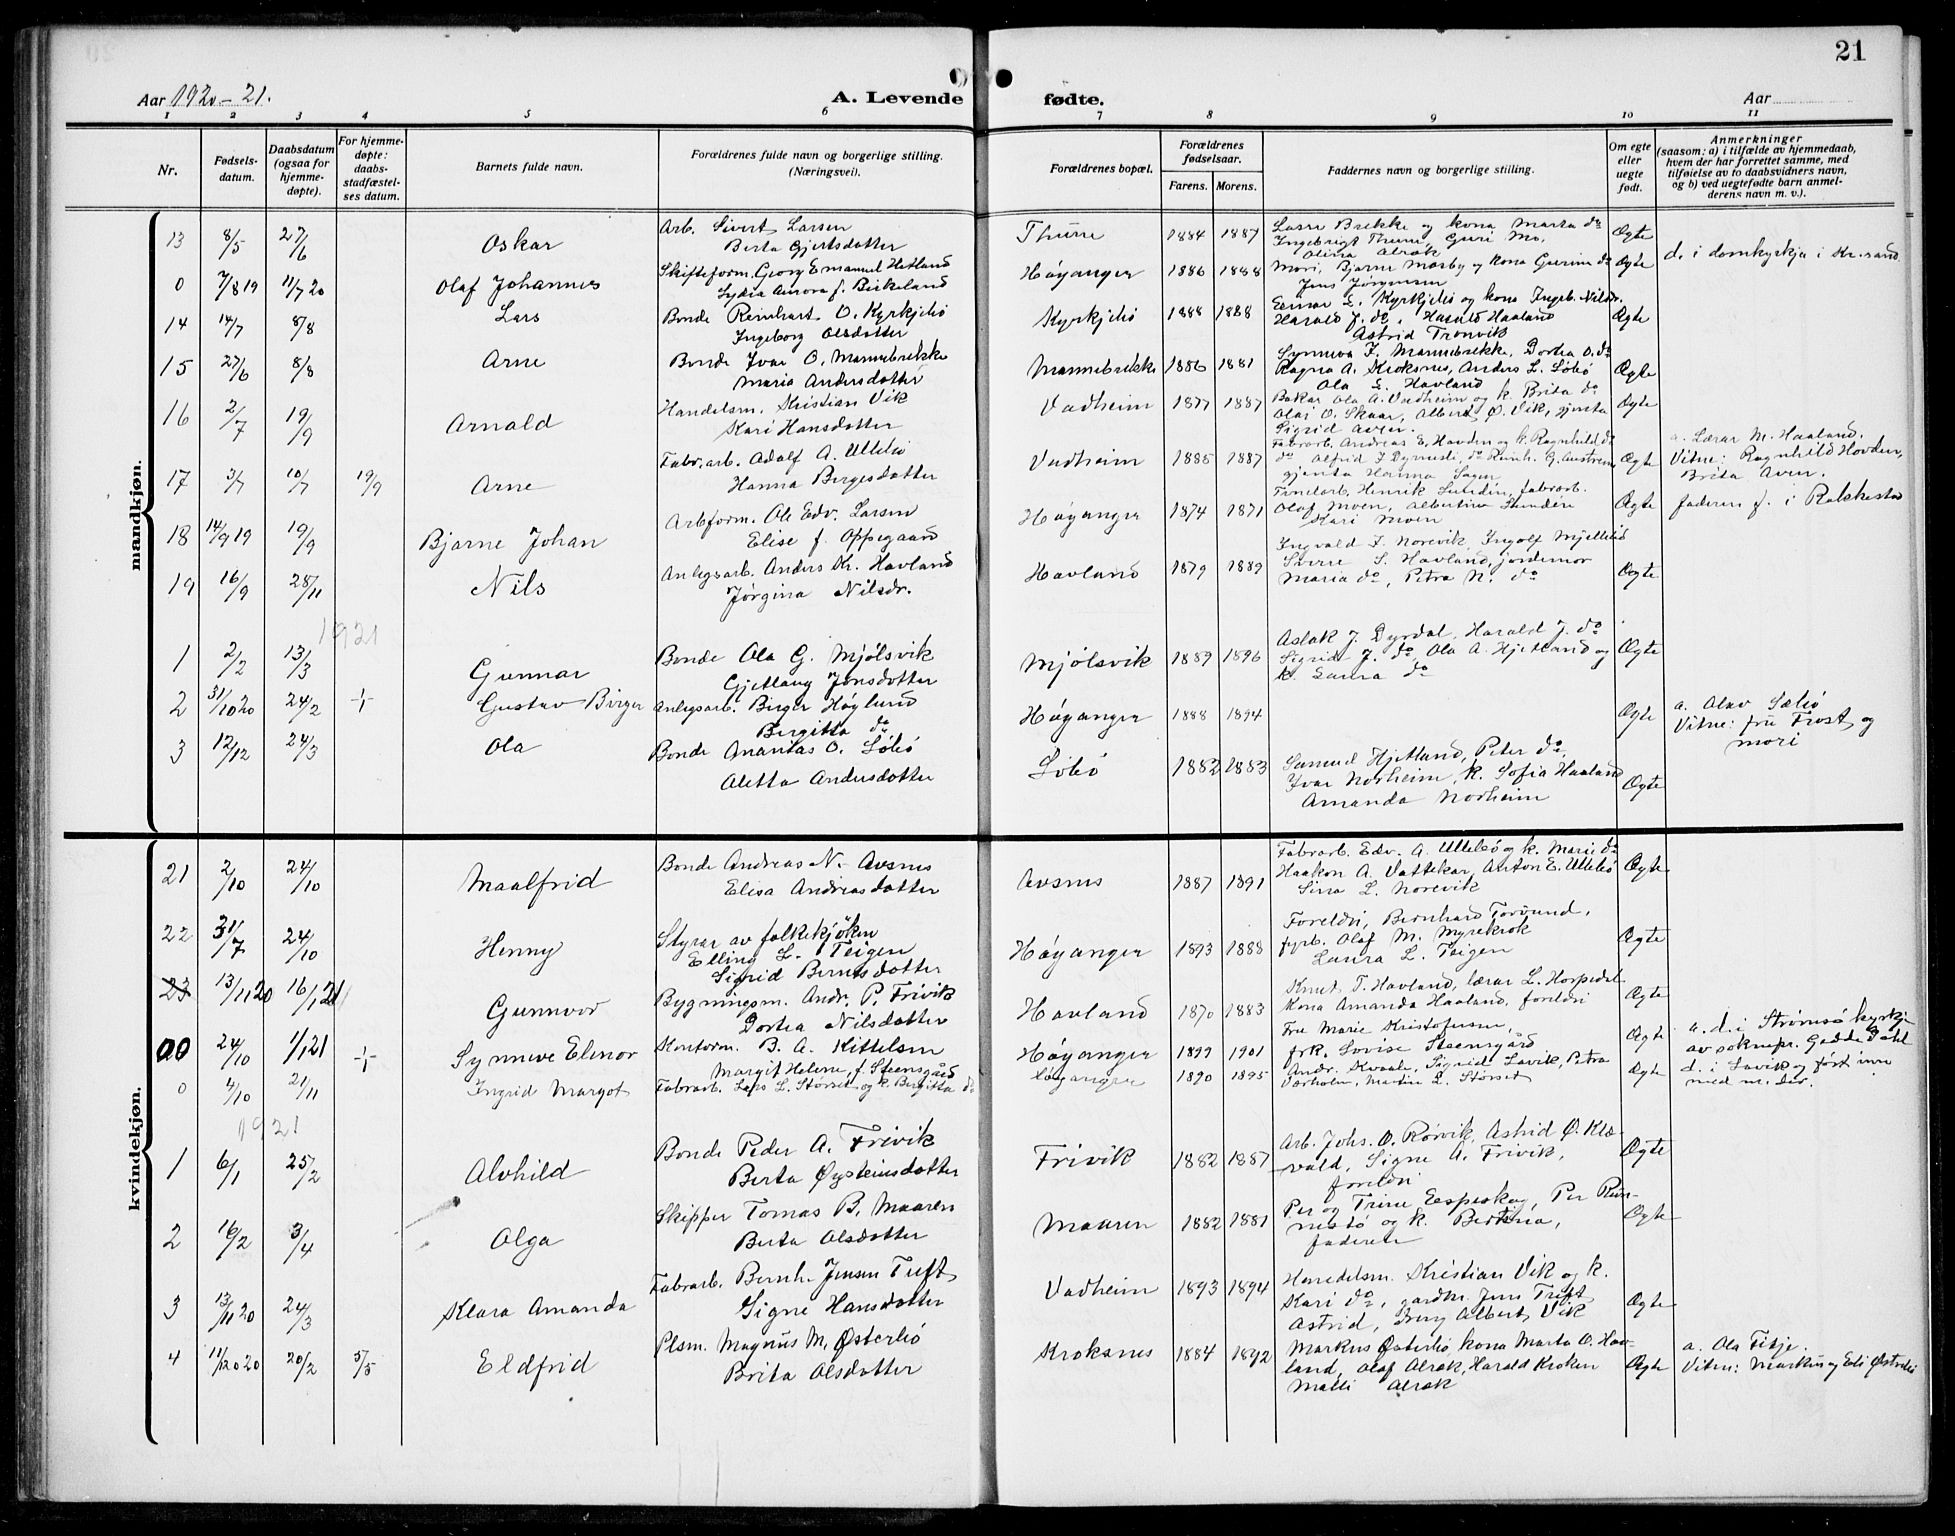 21
Aar 1920-21.
A. Levende fødte.
Aar
1 2 3 4 5 6 7 8 9 10 11
Nr.
Fødsels-datum.
Daabsdatum (ogsaa for hjemme-døpte).
For hjemme-døpte: daabs-stadfæstel-ses datum.
Barnets fulde navn.
Forældrenes fulde navn og borgerlige stilling. (Næringsvei).
Forældrenes bopæl.
Forældrenes fødselsaar.
Farens. Morens.
Faddernes navn og borgerlige stilling.
Om egte eller uegte født.
Anmerkninger
(saasom: a) i tilfælde av hjemmedaab, hvem der har forrettet samme, med tilføielse av to daabsvidners navn, og b) ved uegtefødte barn anmel-derens navn m. v.).
mandkjøn.
13 8/5 27/6 Oskar Arb. Sivert Larsen
Berta Gjertsdotter
1884 1887 Lasse Brekke og kona Marta do
Ægte
0 7/8 19 11/7 20 Olaf Johannes Skifteform. Georg Emanuel Hetland
Sydia Aurora f. Birkeland
Høyanger 1886 1888 Mori, Bjarne Mosby og kona Gurine do
Jens Jørgensen
Ægte d. i domkyrkja i Kr.sand
14 14/7 8/8 Lars Bonde Reinhart O. Kyrkjebø
Ingeborg Olsdotter
Kyrkjebø 1888 1888 Einar L. Kyrkjebø og kona Ingeb. Nilsdr.
Harald J. do, Harald Haaland
Astrid Tronvik
Ægte
15 27/6 8/8 Arne Bonde Ivar O. Mannebrekke
Maria Andersdotter
Mannebrekke 1886 1881 Synneva I. Mannebrekke, Dortea O. do
Ragna A. Kroksnes, Anders L. Løbø
Ola L. Havland
Ægte
16 2/7 19/9 Arnald Handelsm. Kristian Vik
Kari Hansdotter
Vadheim 1877 1887 Bakar Ola A. Vadheim og k. Brita do
Olai O. Skaar, Albert Ø. Vik, gjenta
Sigrid Aven.
Ægte
17 3/7 10/7 19/9 Arne Fabr.arb. Adolf A. Ullebø
Hanna Birgesdotter
Vadheim 1885 1887 Fabrarb. Andreas E. Hovden og k. Ragnhild do
gjenta Hanna
Ægte a. Lærar M. Haaland.
Vitne: Ragnhild Hovden,
Brita Aven.
18 14/9 19 19/9 Bjarne Johan Arbform. Ole Edv. Larsen
Elise f. Oppegaard
Høyanger 1874 1871 Henrik Sundin, fabrarb.
Olaf Moen, Albertine Sundin
Kari Moen
Ægte faderen f. i Rakkestad
19 16/9 28/11 Nils Anlegsarb. Anders Kr. Havland
Jørgina Nilsdr.
Havland 1879 1889 Ingvald I. Norevik, Ingolf Mjellid
Sivert S. Havland, jordemor
Maria do, Petra N. do
Ægte
1921
1 2/2 13/3 Gunnar Bonde Ola G. Mjølsvik
Gjetlaug Jonsdotter
Mjølsvik 1889 1896 Aslak J. Dyrdal, Harald J. do
Sigrid J. do, Ola A. Hjetland og
k. Laura do
Ægte
2 31/10 20 24/2 + Gustav Birger Anlegsarb. Birger Høglund
Birgitta do
Høyanger 1888 1894 Ægte a. Olav Sæbø
Vitne: fru Frost og
mori
3 12/12 24/3 Ola Bonde Ananias O. Løbø
Aletta Andersdotter
Løbø 1882 1883 Samuel Hjetland, Peter do,
Ivar Norheim, k. Sofia Haaland
Amanda Norheim
Ægte
kvindekjøn.
21 2/10 24/10 Maalfrid Bonde Andreas N. Avsnes
Elisa Andreasdotter
Avsnes 1887 1891 Fabrarb. Edv. A. Ullebø og k. Marie do
Haakon A. Vattekar, Anton E. Ullebø
Sina L. Norevik
Ægte
22 31/7 24/10 Henny Styrar av folkekjøken
Elling L. Teigen
Sigrid Berntsdotter
Høyanger 1893 1888 Foreldri, Bernhard Torvund,
fyrb. Olaf M. Myrekrok
Laura L. Teigen
Ægte
23 13/11 20 16/1 21 Gunnvor Bygningsm. Andr. P. Frivik
Dortea Nilsdotter
Havland 1870 1883 Knut T. Havland, lærar L. Horpedal
Kona Amanda Haaland, foreldri
Ægte
00 24/10 1/1 21 + Synneve Elenor Kontorm. B. A. Kittelsen
Margit Helene, f. Steensgård
Høyanger 1899 1901 Fru Marie Kristofersen,
frk. Lovise Steensgård
Ægte a. d. i Strømsø kyrkje
av soknepr. Gadde Dahl
0 4/10 21/11 Ingrid Margot Fabrarb. Lars L. Størset og k. Birgitta do
Høyanger 1890 1895 Andr. Kvaale, Sigrid Lavik, Petra
Værholm, Martin L. Størset
Ægte d. i Lavik og ført inn
med m. der.
1921
1 6/1 25/2 Alvhild Bonde Peder A. Frivik
Berta Øysteinsdotter
Frivik 1882 1887 Arb. Johs. O. Rørvik, Astrid Ø. Klæ-
vold, Signe A. Frivik,
foreldri
Ægte
2 16/2 3/4 Olga Skipper Tomas B. Maaren
Berta Olsdotter
Maaren 1882 1881 Per og Trine Eespeskog, Per Run-
nestø og k. Bertina,
faderen
Ægte
3 13/11 20 24/3 Klara Amanda Fabrarb. Bernh. Jensen Tuft
Signe Hansdotter
Vadheim 1893 1894 Handelsm. Kristian Vik og k.
Kari do, gardbr. Jens Tuft
Astrid, Albert Vik
Ægte
4 11/12 20 20 20/2 5/5 Eldfrid Plsm. Magnus M. Østerbø
Brita Olsdotter
Kroksnes 1884 1892 Markus Østerbø, kona Marta O. Hav-
land, Olaf Alrek, Harald Kroken
Malli Alrek
Ægte a. Ola Fitje.
Vitne: Markus og Eli Østerbø